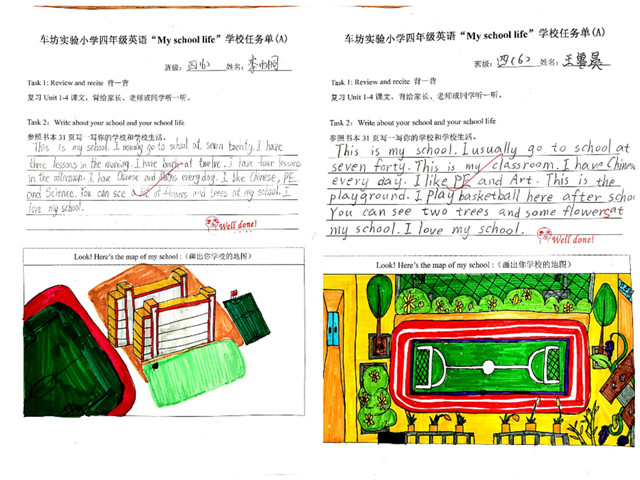 车坊实验小学四年级英语“My school life”学校任务单(A)
班级：四(6) 姓名：李
Task 1: Review and recite 背一背
复习 Unit 1-4 课文，背给家长、老师或同学听一听。
Task 2: Write about your school and your school life
参照书本 31 页写一写你的学校和学校生活。
This is my school. I usually go to school at seven twenty. I have
three lessons in the morning. I have lunch at twelve. I have four lessons
in the afternoon. I have Chinese and Maths every day. I like Chinese, PE
and Science. You can see a lot of flowers and trees at my school. I
love my school.
Well done!
Look! Here's the map of my school：(画出你学校的地图)
车坊实验小学四年级英语“My school life”学校任务单(A)
班级：四(6) 姓名：王
Task 1: Review and recite 背一背
复习 Unit 1-4 课文，背给家长、老师或同学听一听。
Task 2: Write about your school and your school life
参照书本 31 页写一写你的学校和学校生活。
This is my school. I usually go to school at
seven forty. This is my classroom. I have Chinese
every day. I like PE and Art. This is the
playground. I play basketball here after scho
You can see two trees and some flowers at
my school. I love my school.
Well done!
Look! Here's the map of my school：(画出你学校的地图)